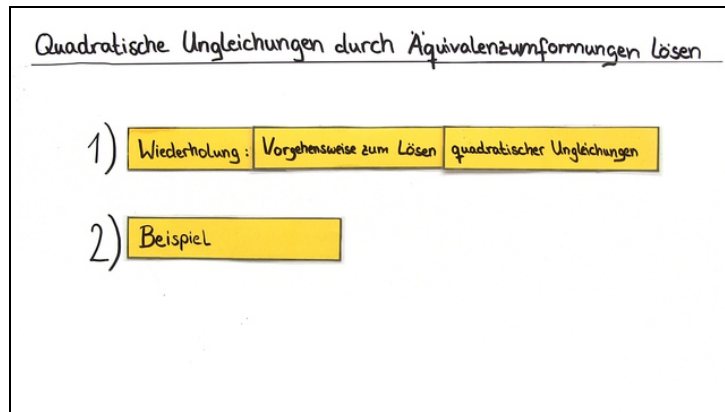 Quadratische Ungleichungen durch Äquivalenzumformungen lösen
1) Wiederholung: Vorgehensweise zum Lösen quadratischer Ungleichungen
2) Beispiel